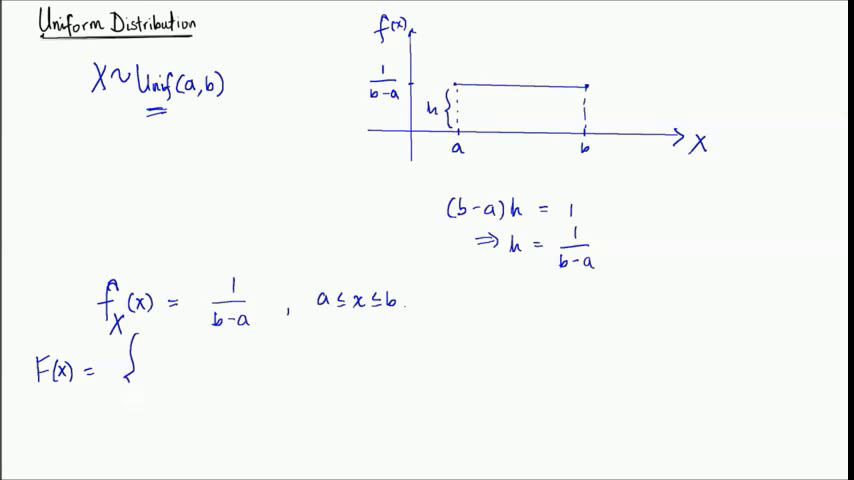 Uniform Distribution
X ~ Unif(a,b)
f(x)
1
b-a
h
a
b
X
(b-a)h = 1
⇒ h = 1/(b-a)
f_X(x) = 1/(b-a) , a ≤ x ≤ b.
F(x) = {